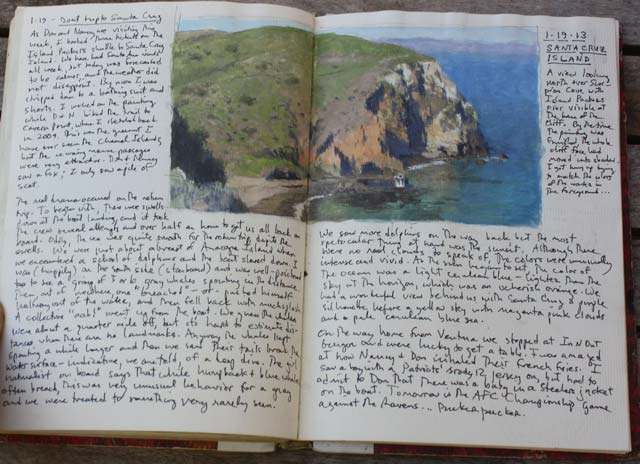 1-19 - Boat trip to Santa Cruz
As Don and Nancy are visiting this
week, I booked three tickets on the
Island Packers shuttle to Santa Cruz
Island. We have had Santa Ana winds
all week, but today was forecasted
to be calmer, and the weather did
not disappoint. By noon I was
stripped down to a bathing suit and
shorts. I worked on the painting
while D+N hiked the trail to
Cavern Point, which I sketched back
in 2009. This was the greenest I
have ever seen the Channel Islands
but the remaining barren passages
were very attractive. Don + Nancy
saw a fox; I only saw a pile of
scat.
The real drama occurred on the return
trip. To begin with there were swells
down at the boat landing and it took
the crew several attempts and over half an hour to get us all back on
board. Oddly, the sea was quite smooth for the return trip despite the
swells. We were just about abreast of Anacapa Island when
we encountered a school of dolphins and the boat slowed down. I
was (happily) on the south side (starboard) and was well-positioned
too to see a group of 7 or 8 gray whales spouting in the distance.
Then out of nowhere one breached - or - pulled himself
halfway out of the water, and then fell back with much splash.
A collective "aahh" went up from the boat. We guess the whales
were about a quarter mile off, but it's hard to estimate dis-
tances when there are no landmarks. Anyway the whales kept
spouting a while longer and then we saw their tails break the
water surface - indicative, we are told, of a deep dive. The girl
naturalist on board says that while humpback + blue whales
often breach, this was very unusual behavior for a gray
and we were treated to something very rarely seen.
1.19.13
SANTA CRUZ
ISLAND
A view looking
north over Scor-
pion Cove with
Island Packers
pier visible at
the base of the
cliff. By the time
the painting was
finished the whole
cliff face had
moved into shadow.
I got hung up trying
to match the color
of the water in
the foreground...
We saw more dolphins on the way back but the most
spectacular thing at hand was the sunset. Although there
were no real clouds to speak of, the colors were unusually
intense and vivid. As the sun began to set, the color of
the ocean was a light cerulean blue - lighter than the
sky at the horizon, which was an ocherish orange. We
had a wonderful view behind us with Santa Cruz a purple
silhouette before a yellow sky with magenta pink clouds
and a pale cerulean blue sea.
On the way home from Ventura we stopped at In N Out
Burger and were lucky to get a table. I was amazed
at how Nancy + Don inhaled their french fries. I
saw a boy with a Patriots' Brady 12 jersey on, but had to
admit to Don that there was a baby in a Steelers jacket
on the boat. Tomorrow is the AFC Championship Game
against the Ravens... Pucker pucker.